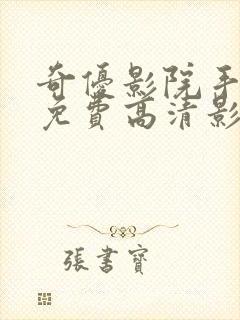 奇優影院手
免費高清影
張書寶